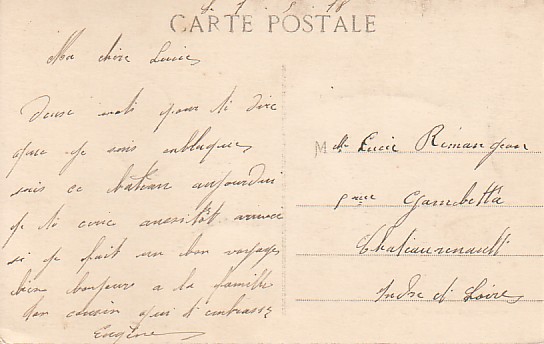 CARTE POSTALE
Ma chère Lucie
Deux mots pour te dire
que je suis
sur ce bateau aujourdui
je te aussitôt arrivé
si je fait un bon voyage
bien bonjour a la famille
ton cousin qui t'embrasse
Eugène
Melle Lucie
Gambetta
Chateaurenault
Indre et Loire